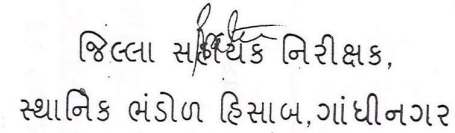 જિલ્લા સહાયક નિરીક્ષક,
સ્થાનિક ભંડોળ હિસાબ, ગાંધીનગર